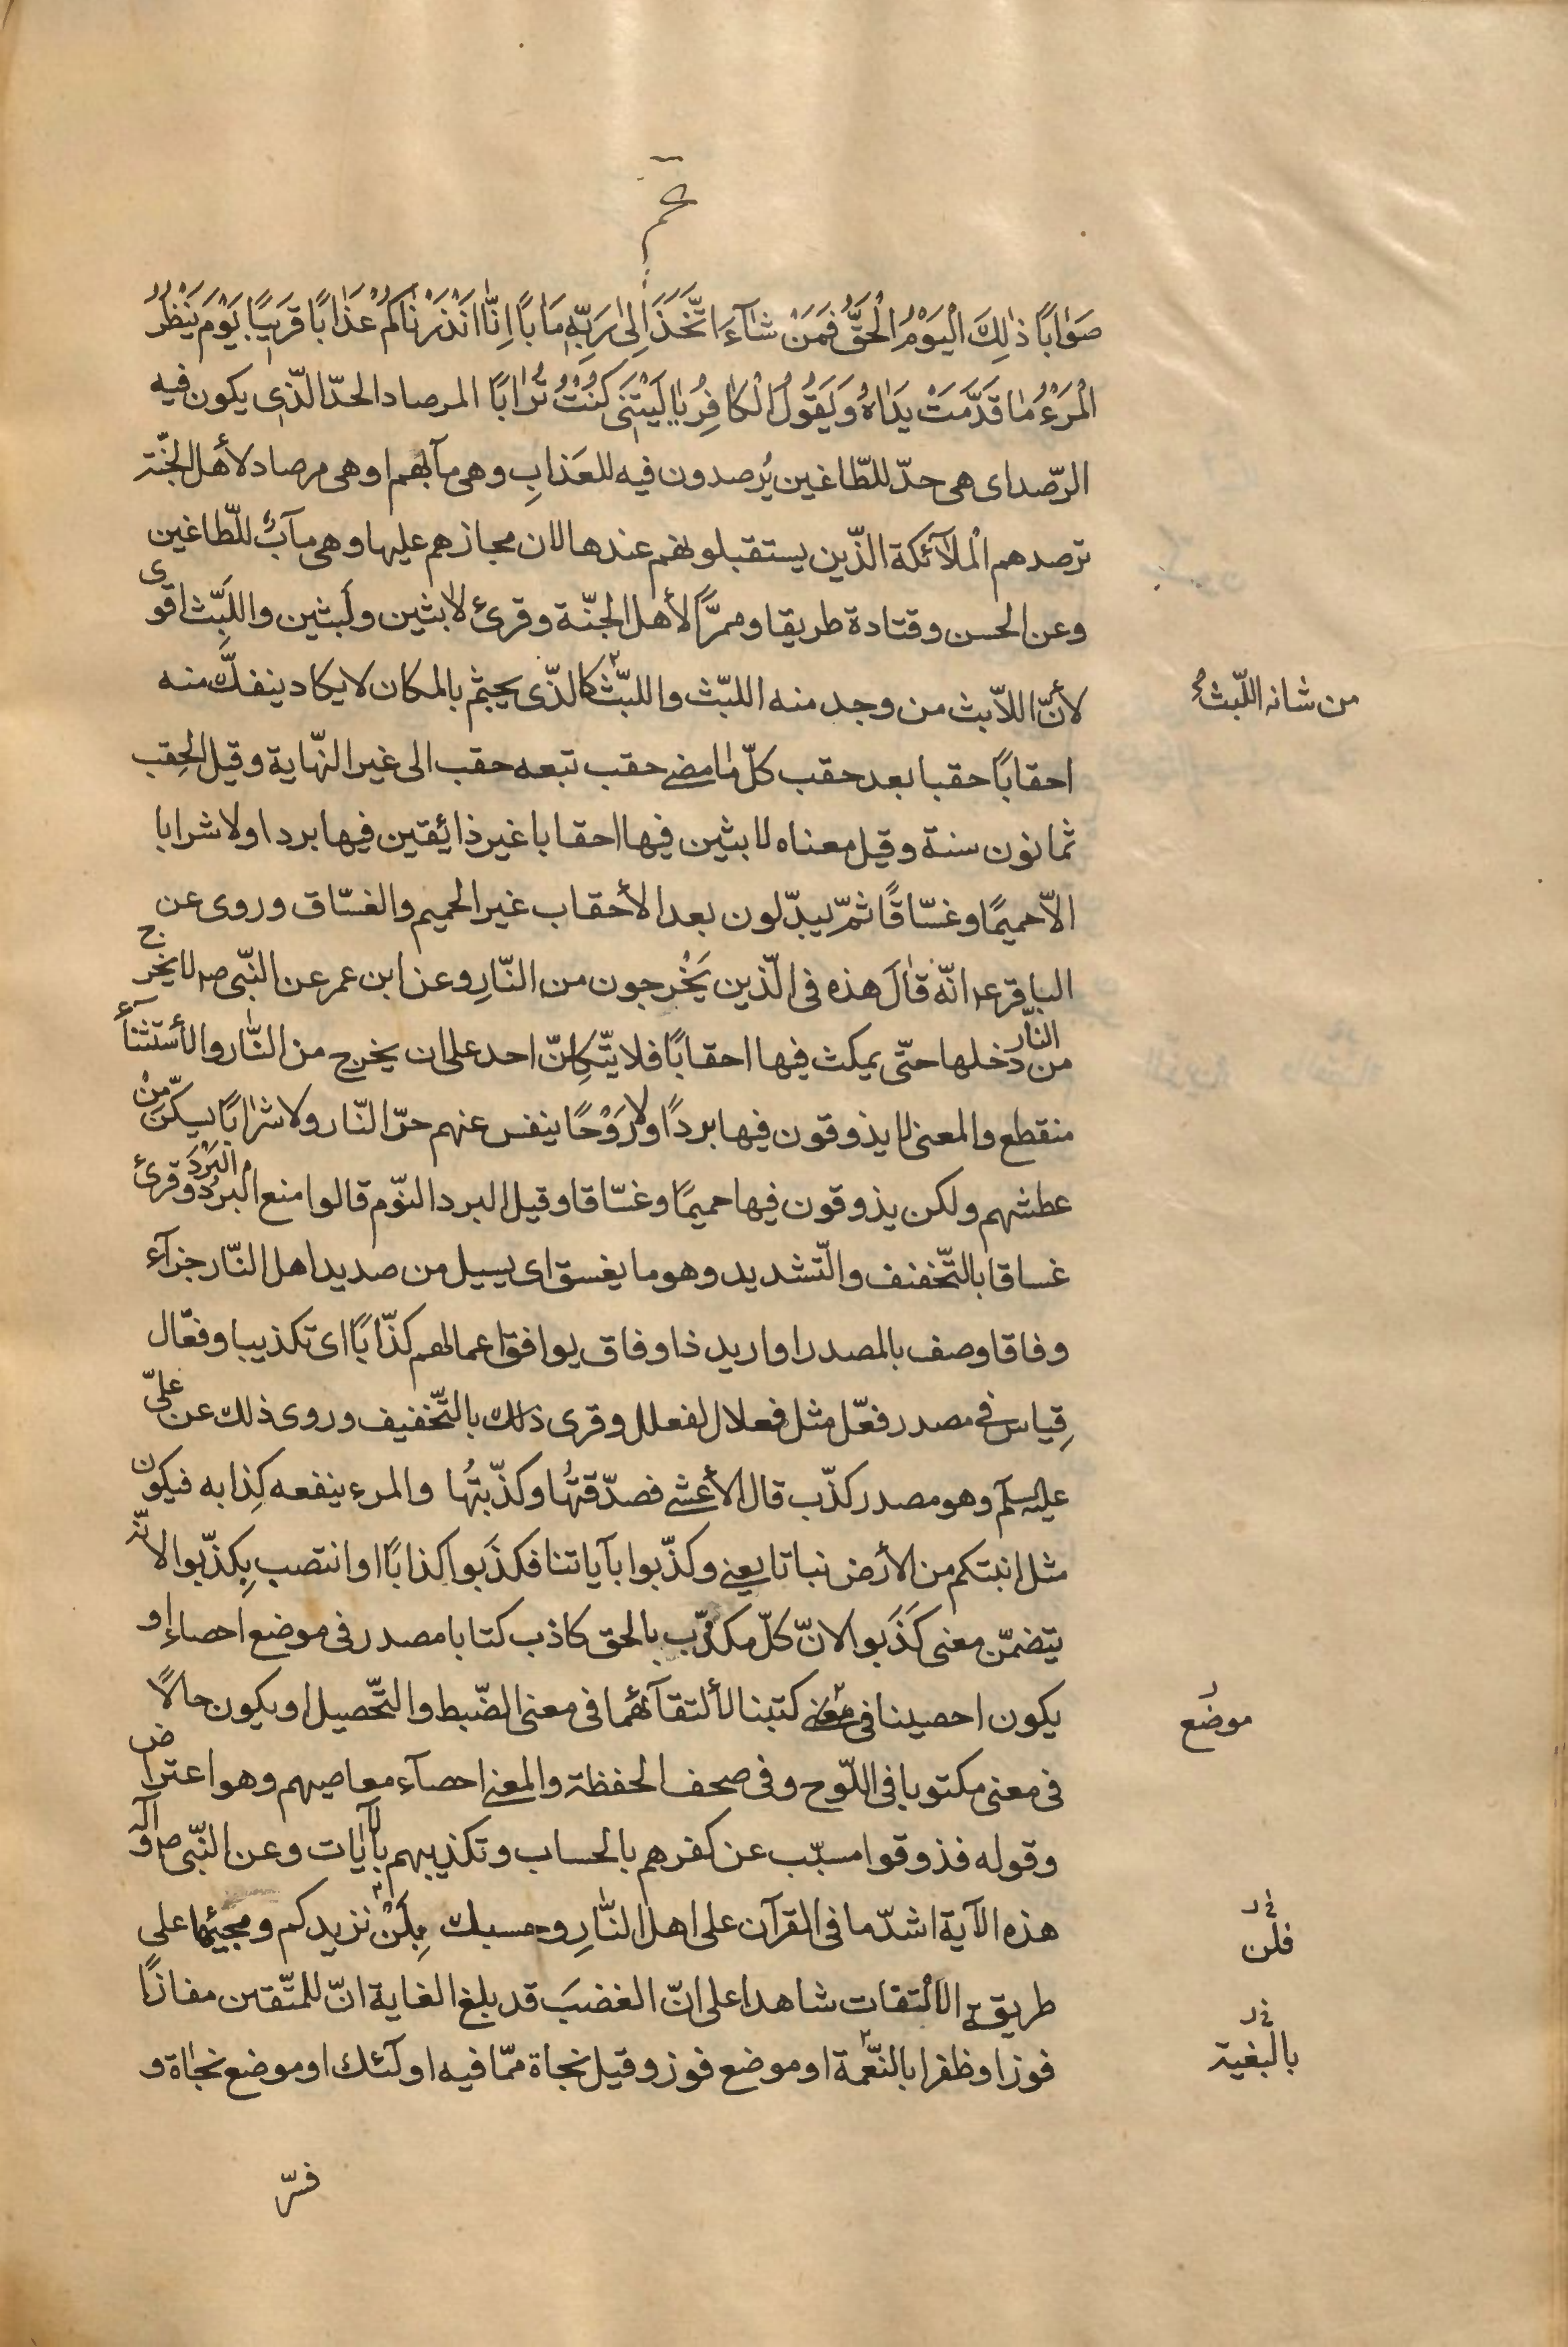 عم
صَوٰابًا ذٰلِكَ الْيَوْمُ الْحَقُّ فَمَنْ شٰآءَ اتَّخَذَ اِلىٰ رَبِّهِ مَاٰبًا اِنّٰا اَنْذَرْنٰاكُمْ عَذٰابًا قَرِيبًا يَوْمَ يَنْظُرُ
الْمَرْءُ مٰا قَدَّمَتْ يَدٰاهُ وَيَقُولُ الْكٰافِرُ يٰا لَيْتَنِي كُنْتُ تُرٰابًا المرصاد الحدّ الّذي يكون فيه
الرّصد اى هى حدّ للطّاغين يُرصدون فيه للعَذابِ وهى مآبهم او هى مرصاد لأهل الجنّة
ترصدهم الْملآئكة الذّين يستقبلونهم عندها لان مجازهم عليها وهى مآبٌ للّطاغين
وعن الحسن وقتادة طريقا وممرًّا لأهل الجنّة وقرئ لابثين ولَبثين واللَّبِث اقوى
لأنّ اللاّبث من وجد منه اللبّث واللبّث كالذّى يجثم بالمكان لا يكاد ينفكّ منه
من شانه اللّبثُ
احقابًا حقبا بعد حقب كلّ مٰا مضى حقب تبعه حقب الى غير النّهاية وقيل الحِقب
ثمانون سنة وقيل معناه لابثين فيها احقابا غير ذائقين فيها بردا ولا شرابا
الاّ حميمًا وغسّاقًا ثمّ يبدّلون بعد الأحقاب غير الحميم والغسّاق وروى عن
الباقر عـ انّه قٰالَ هذه فى الّذين يَخْرجون من النّارِ وعن ابن عمر عن النّبى صـ لا يخرج
من النّار دخلها حتّى يمكث فيها احقابًا فلا يتّكِلنّ احد على ان يخرج من النّار والأستثنآء
منقطع والمعنى لا يذوقون فيها بردًا ولا رَوْحًا ينفس عنهم حرّ النّار ولا شرٰابًا يسكّن مِنْ
عطشهم ولكن يذوقون فيها حميمًا وغسّاقا وقيل البرد النّوم قالوا منع البردُ البَرْدَ وقرئ
غساقا بالتّخفنف والتّشديد وهو ما يغسق اى يسيل من صديد اهل النّار جزآء
وفاقا وصف بالمصدر او اريد ذا وفاق يوافق اعمالهم كذّابًا اى تكذيبا وفعّال
قِياس فى مصدر فعّل مثل فعلال لفعلل وقرى ذلك بالتّخفيف وروى ذلك عن علىّ
عليه سلم وهو مصدر كذّب قال الأعشى فصدّقتُها وكذّبتُها والمرء ينفعه كِذابه فيكون
مثل انبتكم من الأرض نباتا يعنى وكذّبوا بآياتنا فكذَبوا كذابًا او انتصب بِكذّبوا لانّه
يتضمّن معنى كَذَبوا لانّ كلّ مكذّب بالحق كاذب كتابا مصدر فى موضع احصاء او
يكون احصينا فى معنى كتبنا لألتقآئهما فى معنى الضّبط والتّحصيل او يكون حالاً
موضع
فى معنى مكتوبا فى اللّوح وفى صحف الحفظة والمعنى احصآء معاصيهم وهو اعتراض
وقوله فذوقوا مسبّب عن كفرهم بالحساب وتكذيبهم بالآيات وعن النّبى صـ وآله
هذه الآية اشدّ ما فى القرآن على اهل النّارِ وحسبك بِلَنْ نزيدكم ومجيئها على
فلن
طريقة الالْتفات شاهدا على انّ الغضبَ قد بلغ الغاية انّ للمتّقين مفازًا
فوزا وظفرا بالنّعمة او موضع فوز وقيل نجاة ممّا فيه اولٓئك او موضع نجٰاة و
بالبغية
فسّر